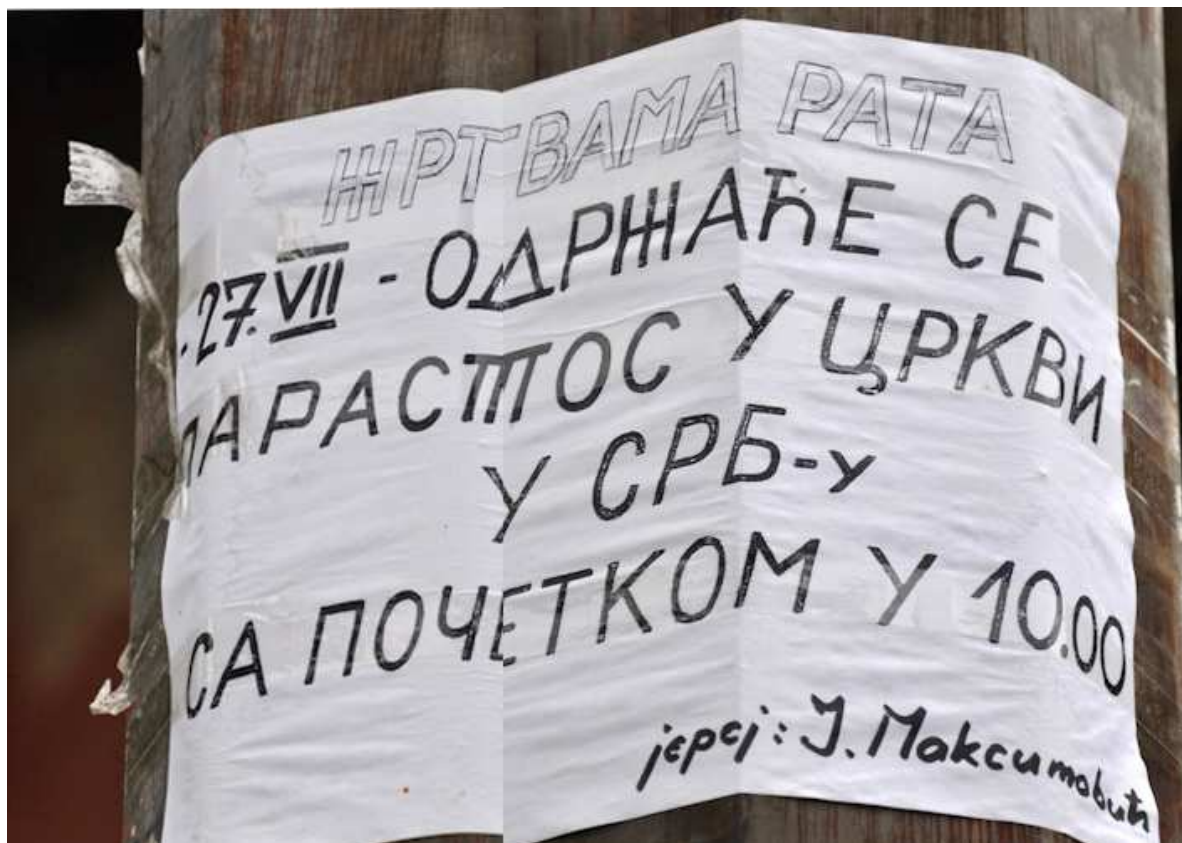 ЖРТВАМА РАТА
-27. VII - ОДРЖАЋЕ СЕ
ПАРАСТОС У ЦРКВИ
У СРБ-у
СА ПОЧЕТКОМ У 10.00
јереј: Ј. Максимовић